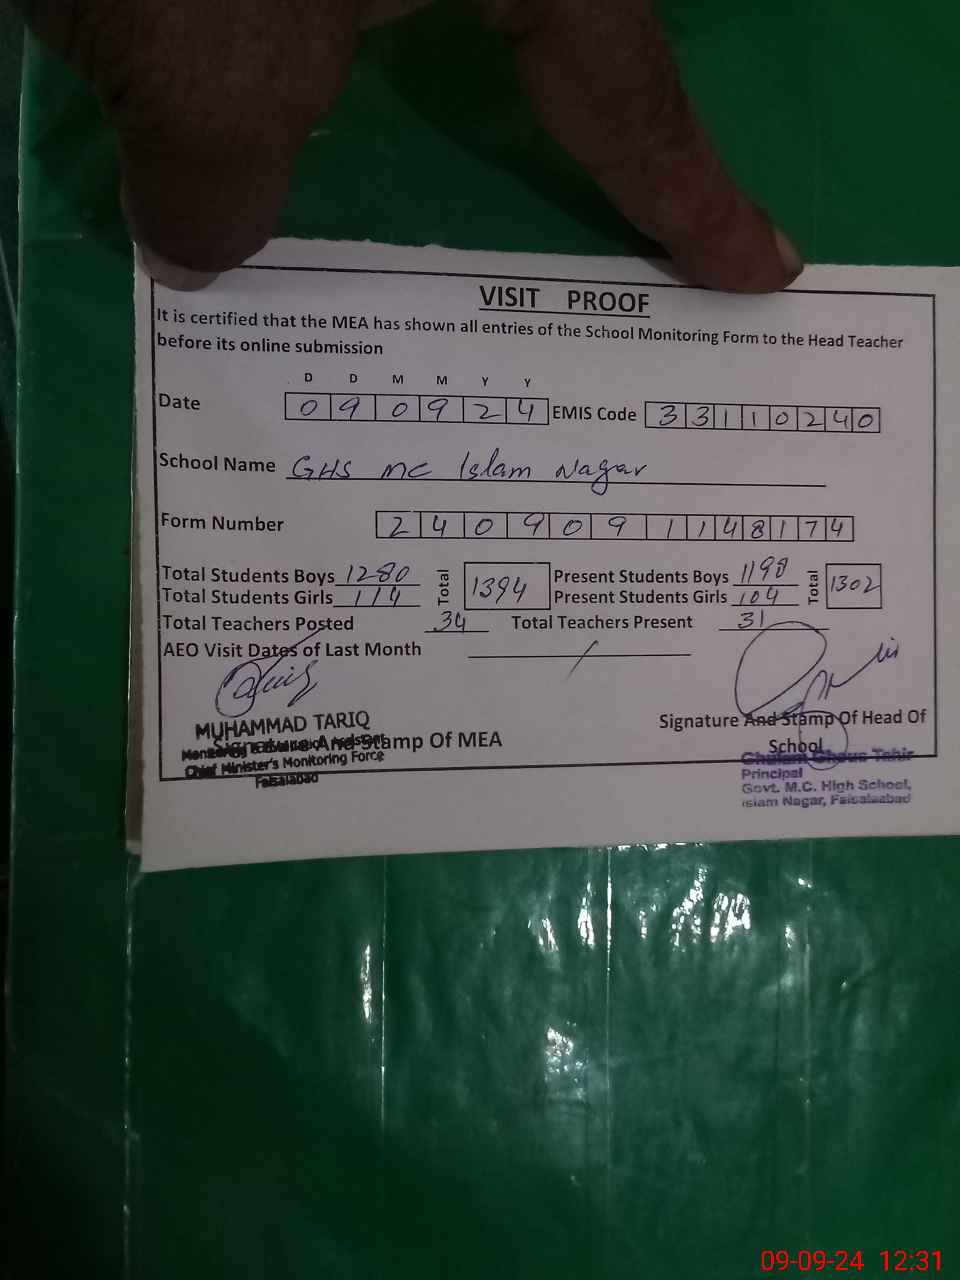 VISIT PROOF
It is certified that the MEA has shown all entries of the School Monitoring Form to the Head Teacher
before its online submission
D D M M Y Y
Date 0 9 0 9 2 4 EMIS Code 3 3 1 1 0 2 4 0
School Name GHS MC Islam Nagar
Form Number 2 4 0 9 0 9 1 1 4 8 1 7 4
Total Students Boys 1280 Total 1394 Present Students Boys 1198 Total 1302
Total Students Girls 114 Present Students Girls 104
Total Teachers Posted 34 Total Teachers Present 31
AEO Visit Dates of Last Month /
MUHAMMAD TARIQ
Signature And Stamp Of MEA
Chief Minister's Monitoring Force
Faisalabad
Signature And Stamp Of Head Of
School
Ghulam Ghous Tahir
Principal
Govt. M.C. High School,
Islam Nagar, Faisalaabad
09-09-24 12:31